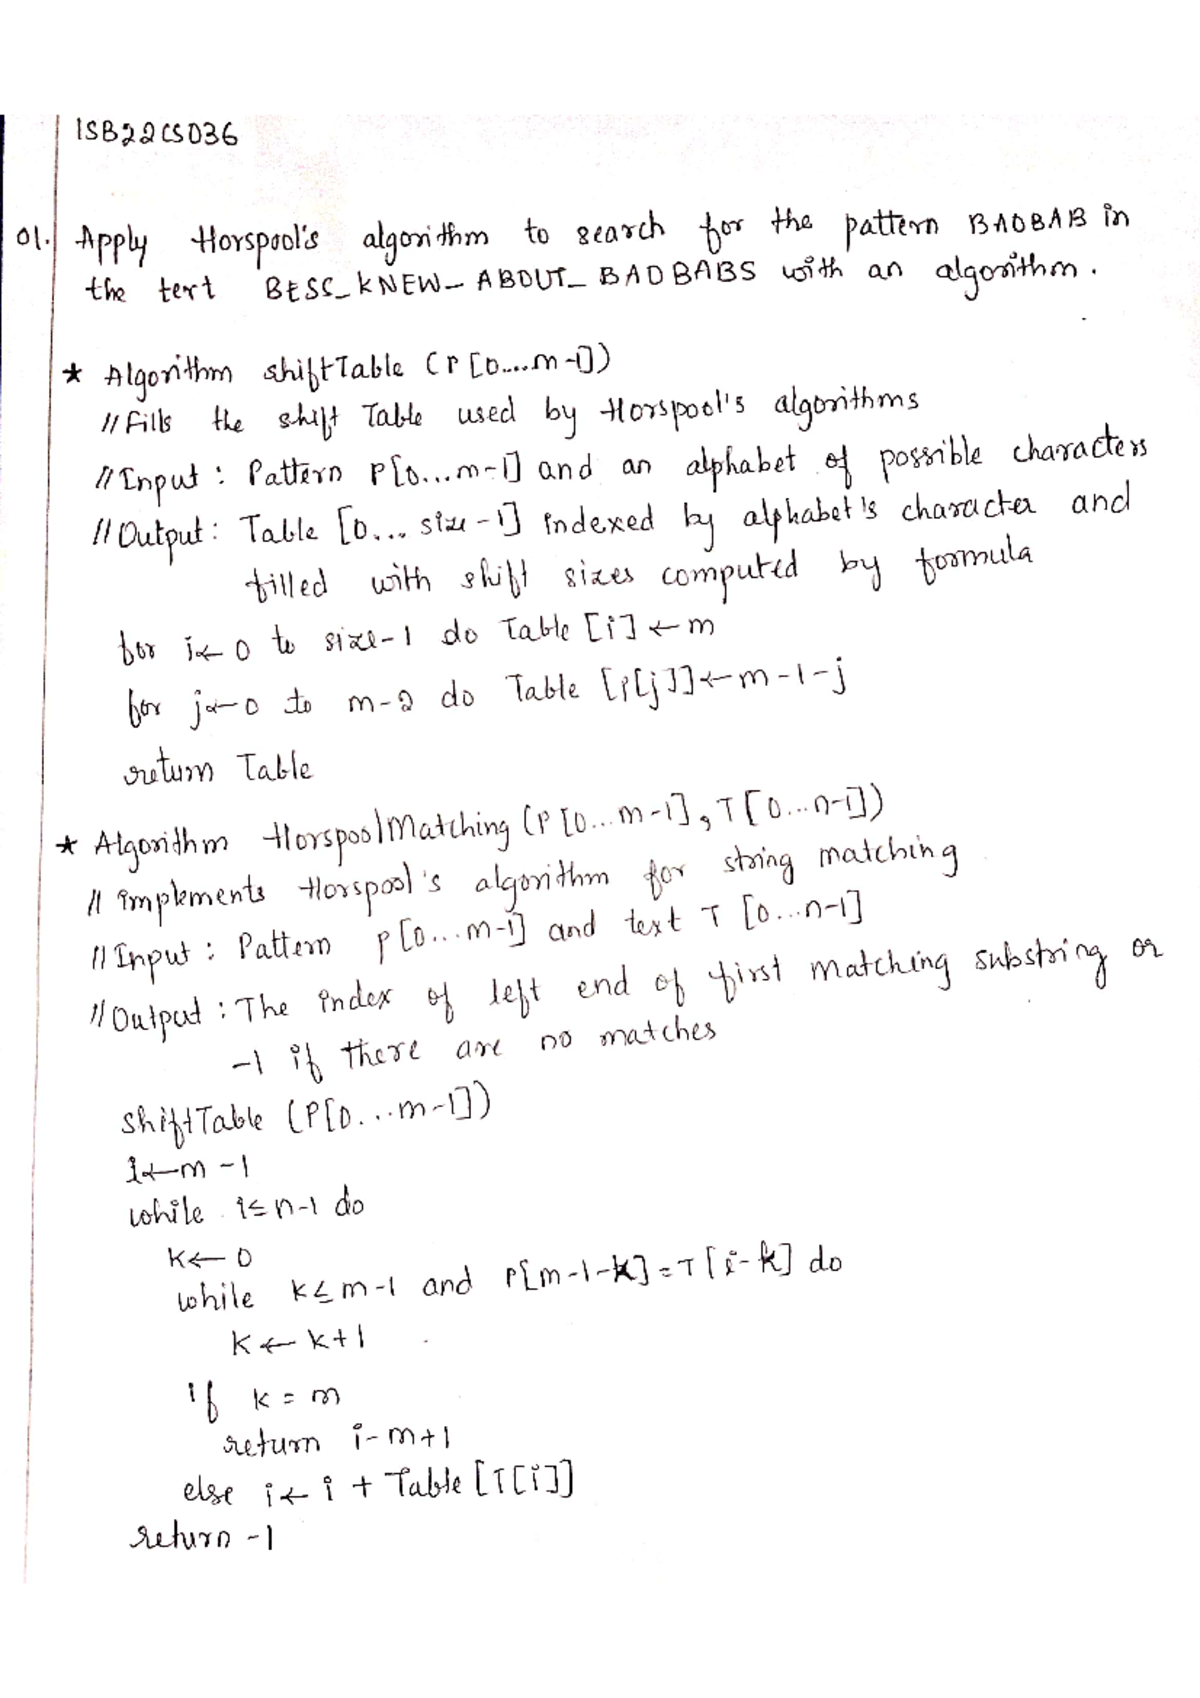 1SB22CS036
01. Apply Horspool's algorithm to search for the pattern BAOBAB in
the text BESS_KNEW_ABOUT_BAOBABS with an algorithm.
* Algorithm shiftTable (P[0....m-1])
// fills the shift Table used by Horspool's algorithms
// Input : Pattern P[0...m-1] and an alphabet of possible characters
// Output : Table [0... size-1] indexed by alphabet's character and
filled with shift sizes computed by formula
for i← 0 to size-1 do Table [i] ← m
for j←0 to m-2 do Table [P[j]]←m-1-j
return Table
* Algorithm HorspoolMatching (P[0...m-1], T[0...n-1])
// implements Horspool's algorithm for string matching
// Input : Pattern P[0...m-1] and text T [0...n-1]
// Output : The index of left end of first matching substring or
-1 if there are no matches
shiftTable (P[0...m-1])
i←m-1
while i≤n-1 do
K← 0
while k≤m-1 and P[m-1-k]=T[i-k] do
K ← k+1
if k = m
return i-m+1
else i← i + Table [T[i]]
return -1